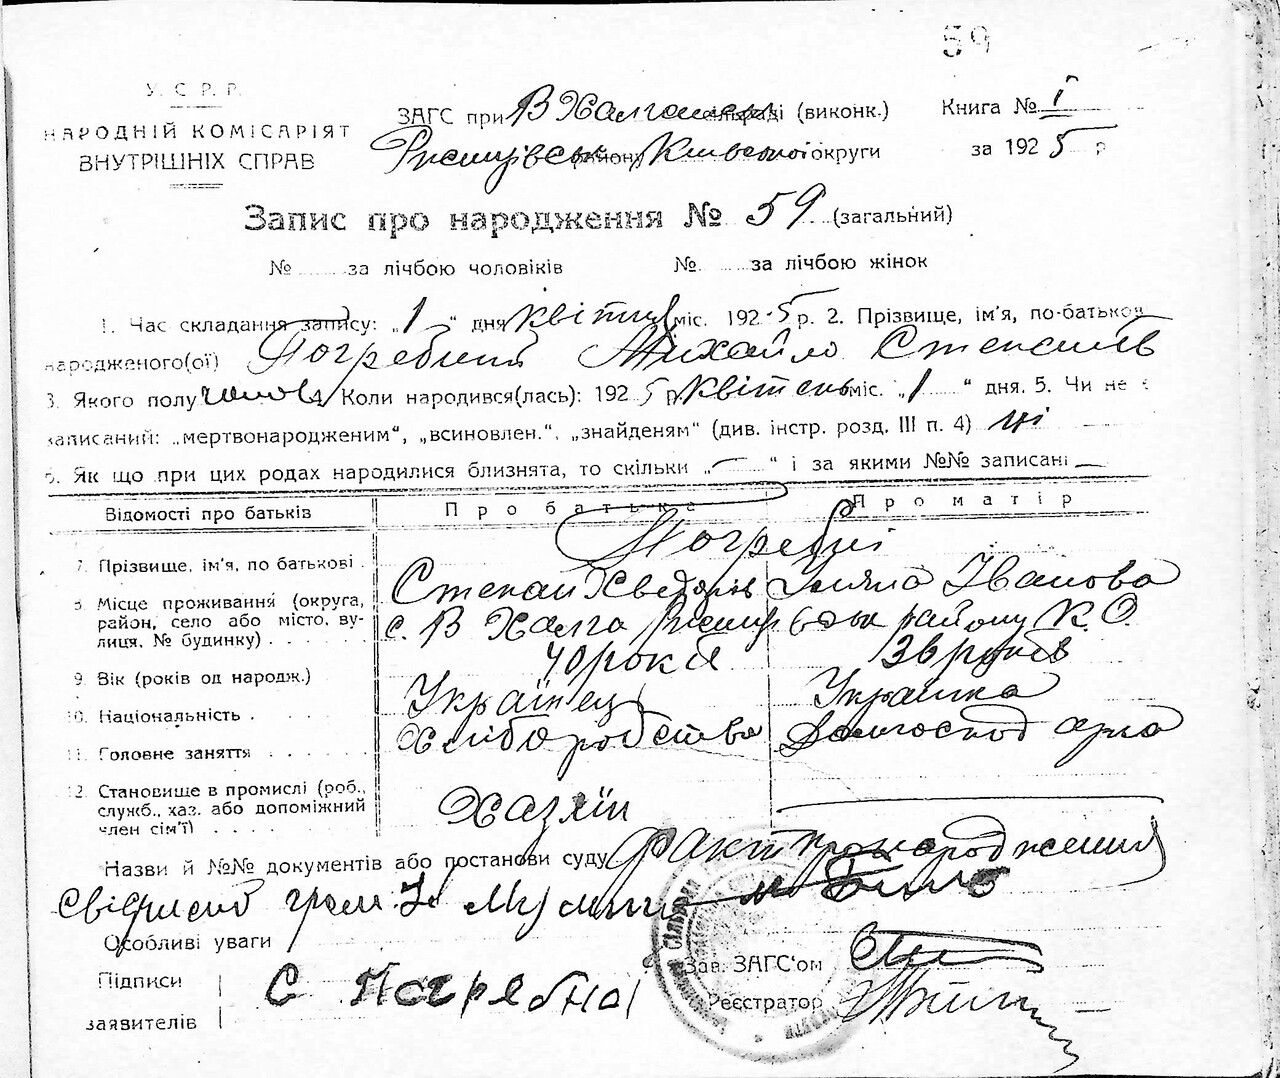 59
У. С. Р. Р.
НАРОДНІЙ КОМІСАРІЯТ
ВНУТРІШНІХ СПРАВ
ЗАГС при В Халчанськ сільраді (виконк.)
Книга № 1
Ржищівськ району Київської округи
за 1925 р
Запис про народження № 59 (загальний)
№ за лічбою чоловіків № за лічбою жінок
1. Час складання запису: „1“ дня квітня міс. 1925 р. 2. Прізвище, ім'я, по-батькові
народженого(ої) Погребний Михайло Степанів
3. Якого полу чолов 4 Коли народився(лась): 1925 р. квітень міс. „1“ дня. 5. Чи не є
записаний: „мертвонародженим“, „всиновлен.“, „знайденям“ (див. інстр. розд. III п. 4) ні
6. Як що при цих родах народилися близнята, то скільки „—“ і за якими №№ записані —
Відомості про батьків
Про батька
Про матір
Погребні
7. Прізвище, ім'я, по батькові
Степан Хведорів Уляна Іванова
8. Місце проживання (округа,
район, село або місто, ву-
лиця, № будинку)
с. В Халча Ржищівськ району К. О.
9. Вік (років од народж.)
40 років
38 років
10. Національність
Українець
Українка
11. Головне заняття
Хліборобство
12. Становище в промислі (роб.,
служб., хаз. або допоміжний
член сім'ї)
Хазяїн
Назви й №№ документів або постанови суду факт про народження
свідчено гром.
Особливі уваги
Підписи
заявителів
С Погребной
Зав. ЗАГС'ом
Реєстратор